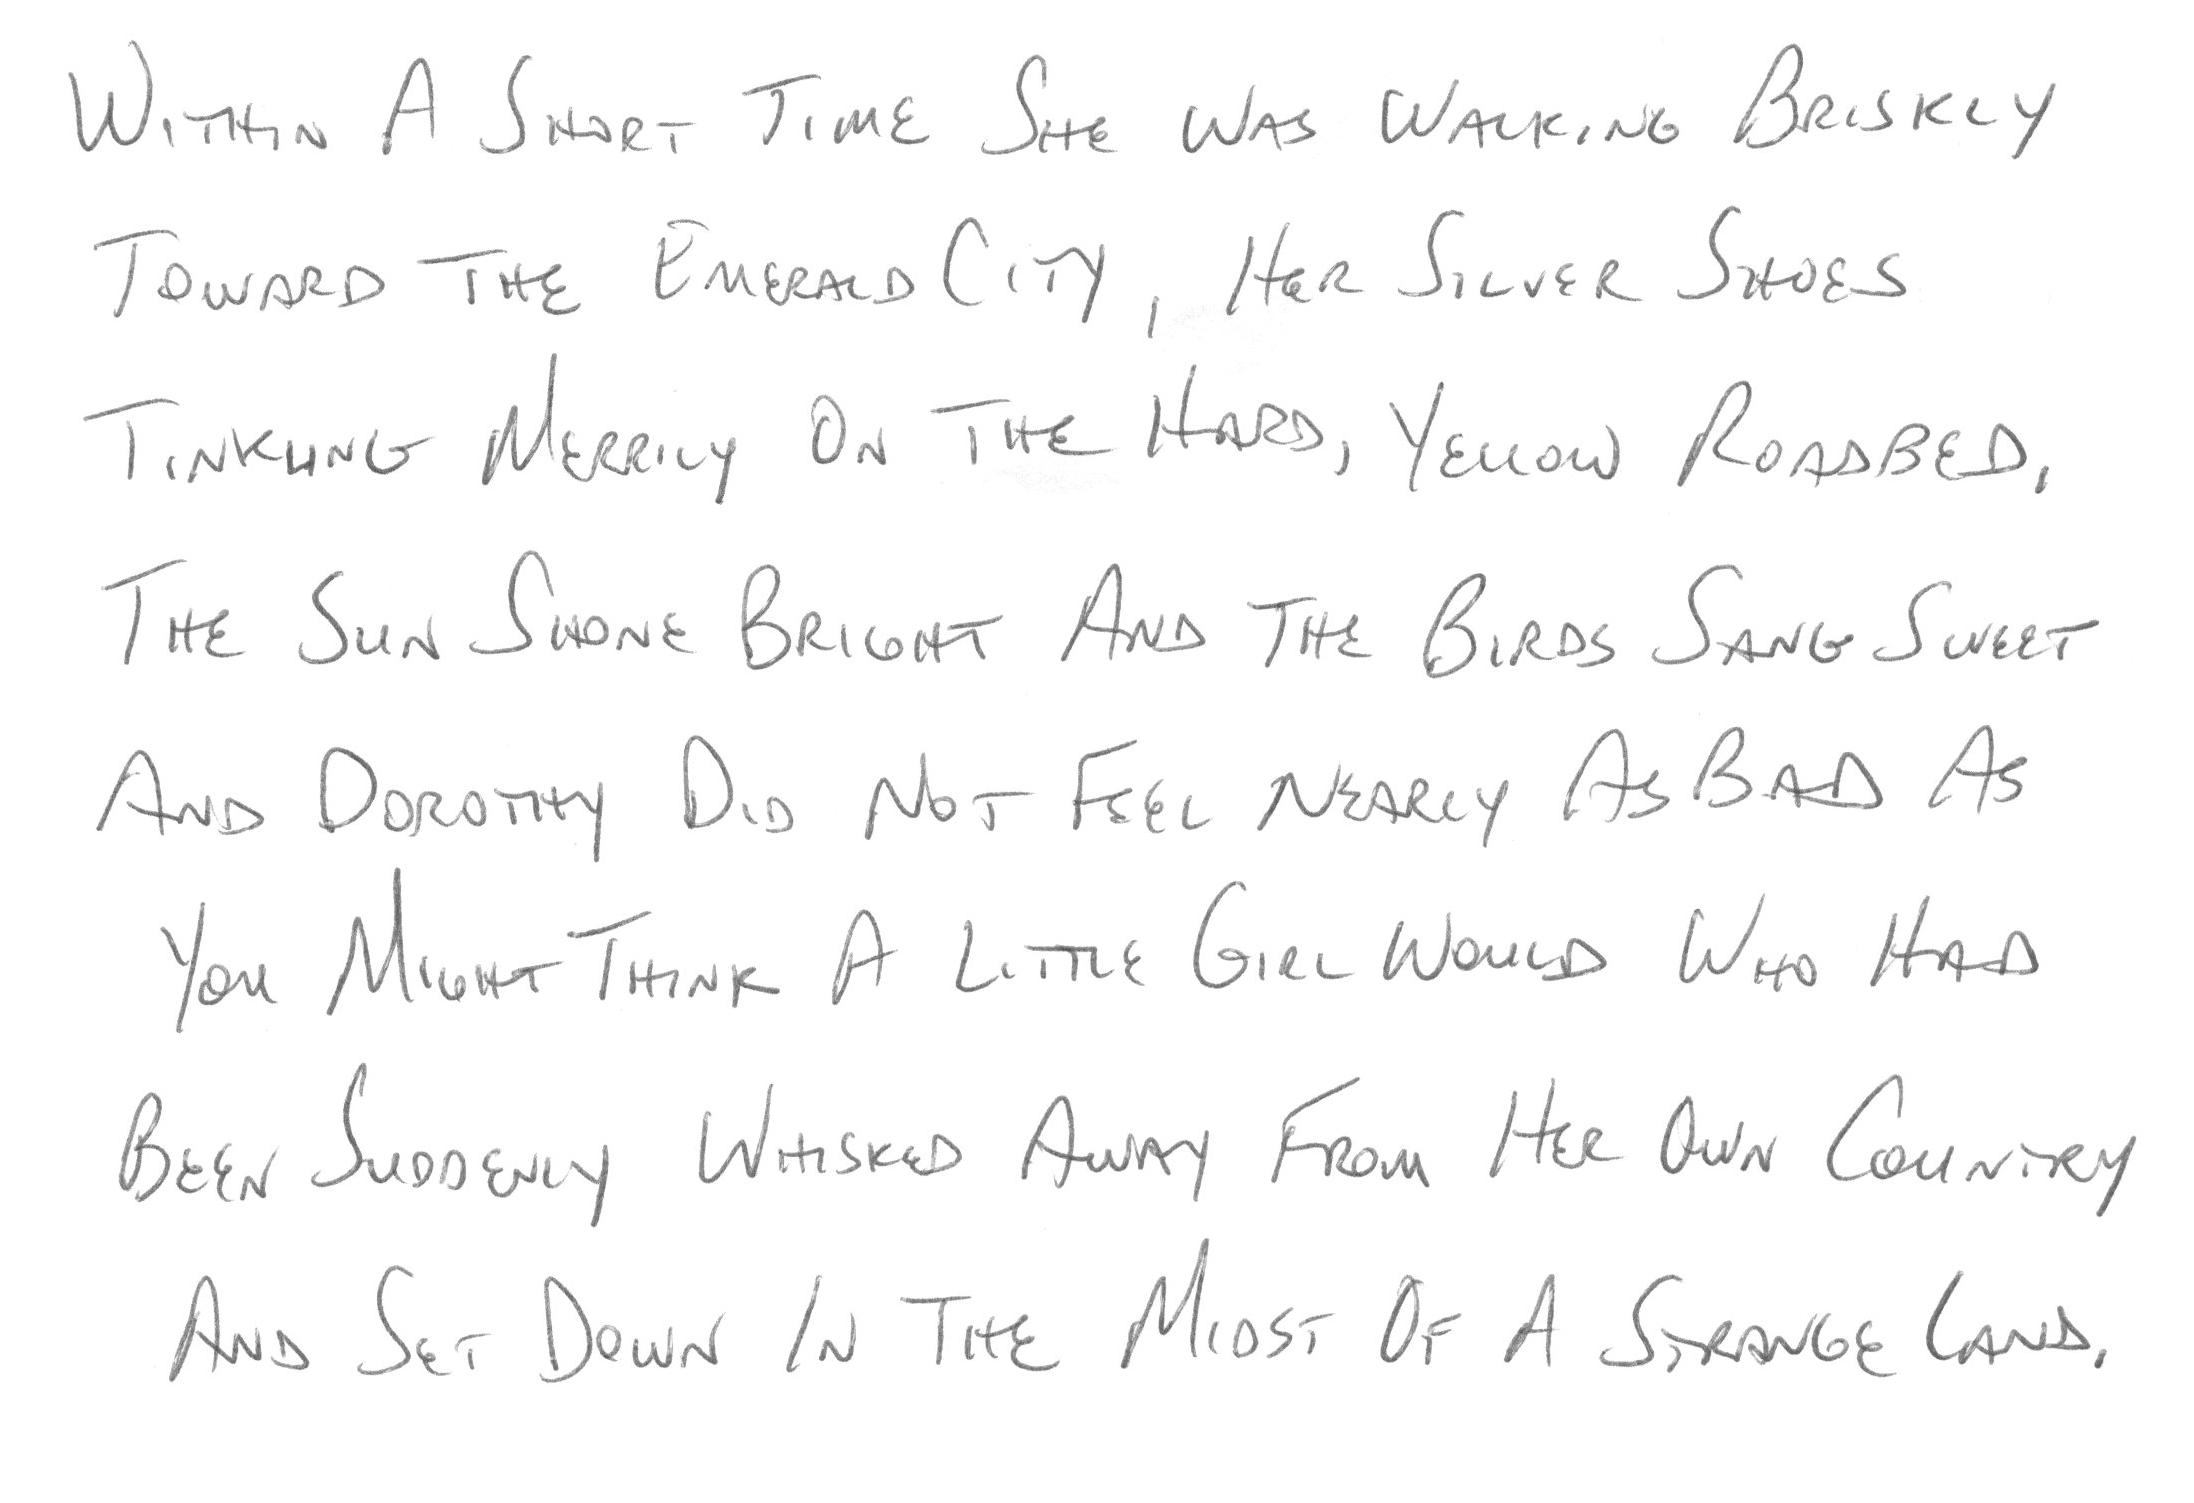 Within A Short Time She Was Walking Briskly
Toward The Emerald City, Her Silver Shoes
Tinkling Merrily On The Hard, Yellow Roadbed.
The Sun Shone Bright And The Birds Sang Sweet
And Dorothy Did Not Feel Nearly As Bad As
You Might Think A Little Girl Would Who Had
Been Suddenly Whisked Away From Her Own Country
And Set Down In The Midst Of A Strange Land.